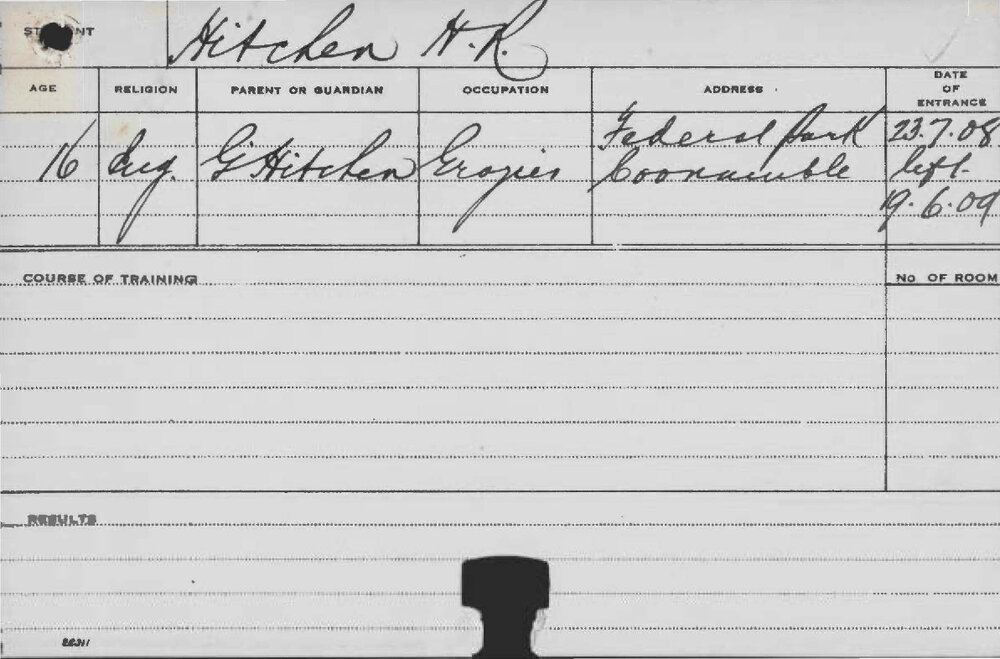 STUDENT Hitchen H. R.
AGE RELIGION PARENT OR GUARDIAN OCCUPATION ADDRESS DATE OF ENTRANCE
16 Eng. G Hitchen Grazier Federal Park 23.7.08
Coonamble left
19.6.09
COURSE OF TRAINING No OF ROOM
RESULTS